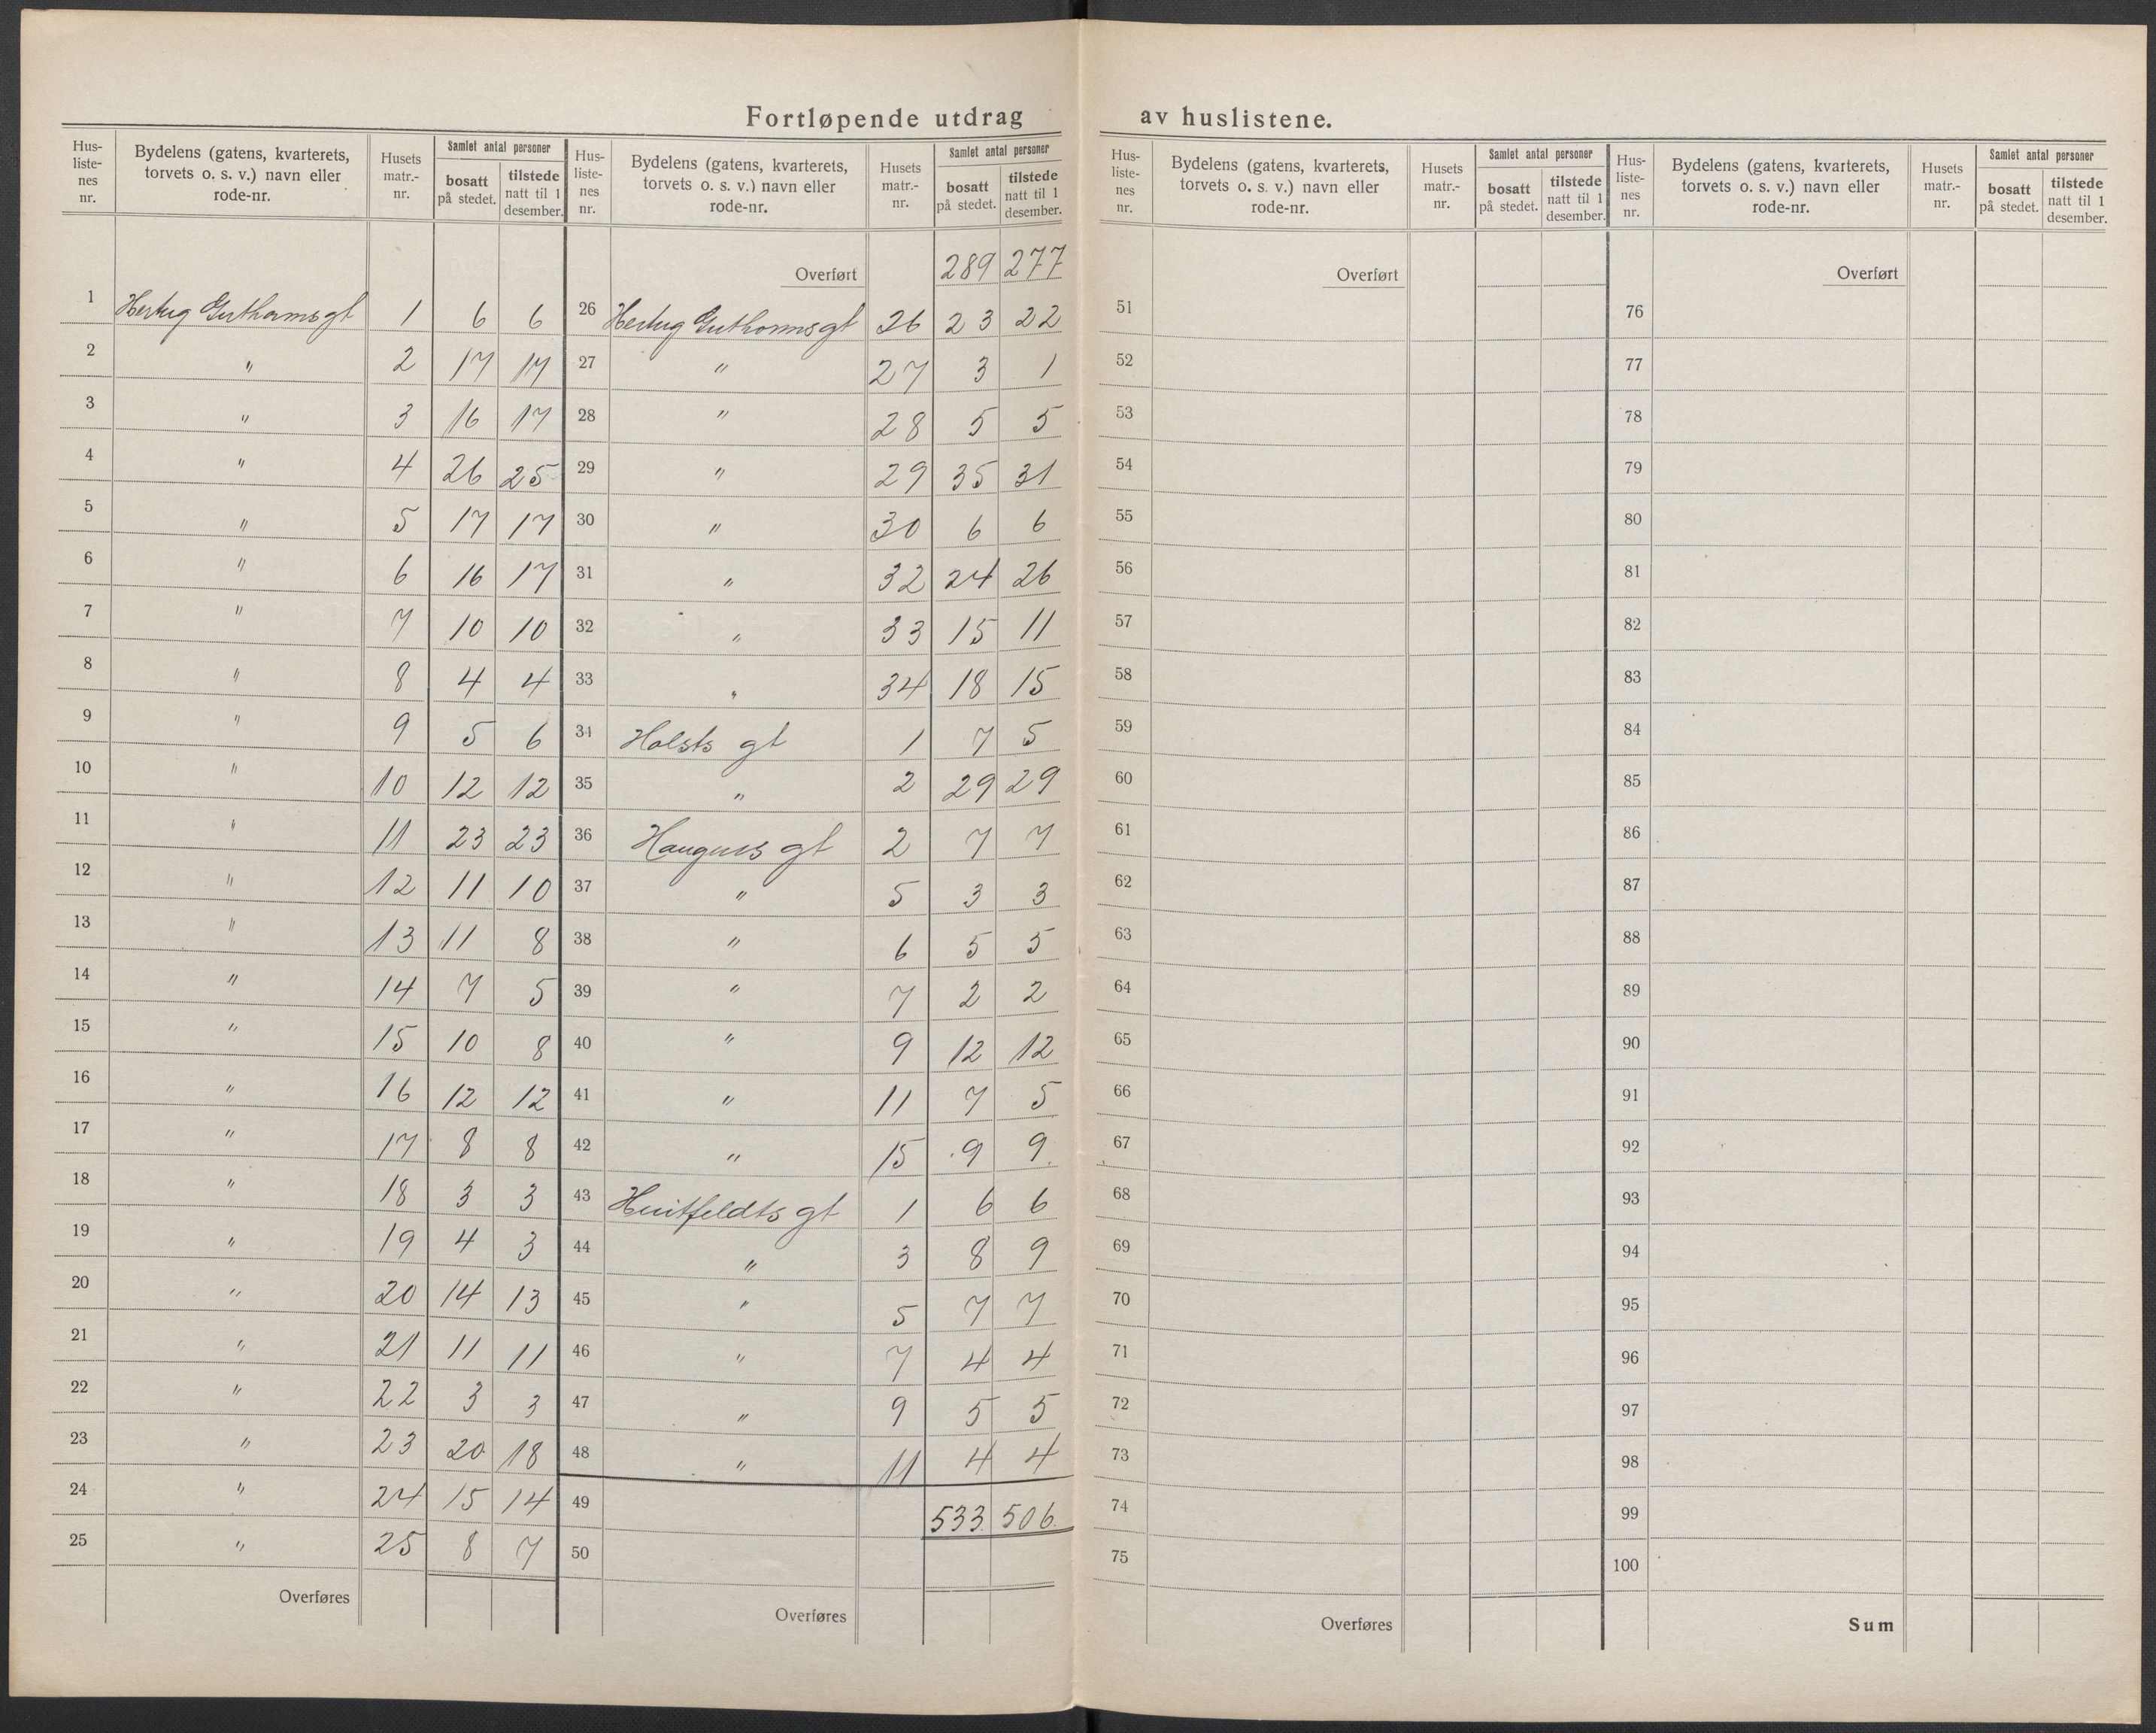 Fortløpende utdrag av huslistene.
Hus-listenes nr. | Bydelens (gatens, kvarterets, torvets o. s. v.) navn eller rode-nr. | Husets matr.-nr. | Samlet antal personer bosatt på stedet. | tilstede natt til 1 desember.
1 Hertug Guthormsgt 1 6 6
2 " 2 17 17
3 " 3 16 17
4 " 4 26 25
5 " 5 17 17
6 " 6 16 17
7 " 7 10 10
8 " 8 4 4
9 " 9 5 6
10 " 10 12 12
11 " 11 23 23
12 " 12 11 10
13 " 13 11 8
14 " 14 7 5
15 " 15 10 8
16 " 16 12 12
17 " 17 8 8
18 " 18 3 3
19 " 19 4 3
20 " 20 14 13
21 " 21 11 11
22 " 22 3 3
23 " 23 20 18
24 " 24 15 14
25 " 25 8 7
Overføres
Hus-listenes nr. | Bydelens (gatens, kvarterets, torvets o. s. v.) navn eller rode-nr. | Husets matr.-nr. | Samlet antal personer bosatt på stedet. | tilstede natt til 1 desember.
Overført 289 277
26 Hertug Guthormsgt 26 23 22
27 " 27 3 1
28 " 28 5 5
29 " 29 35 31
30 " 30 6 6
31 " 32 24 26
32 " 33 15 11
33 " 34 18 15
34 Holsts gt 1 7 5
35 " 2 29 29
36 Haugues gt 2 7 7
37 " 5 3 3
38 " 6 5 5
39 " 7 2 2
40 " 9 12 12
41 " 11 7 5
42 " 15 9 9
43 Huitfeldts gt 1 6 6
44 " 3 8 9
45 " 5 7 7
46 " 7 4 4
47 " 9 5 5
48 " 11 4 4
49 533 506
50
Overføres
Hus-listenes nr. | Bydelens (gatens, kvarterets, torvets o. s. v.) navn eller rode-nr. | Husets matr.-nr. | Samlet antal personer bosatt på stedet. | tilstede natt til 1 desember.
Overført
51
52
53
54
55
56
57
58
59
60
61
62
63
64
65
66
67
68
69
70
71
72
73
74
75
Overføres
Hus-listenes nr. | Bydelens (gatens, kvarterets, torvets o. s. v.) navn eller rode-nr. | Husets matr.-nr. | Samlet antal personer bosatt på stedet. | tilstede natt til 1 desember.
Overført
76
77
78
79
80
81
82
83
84
85
86
87
88
89
90
91
92
93
94
95
96
97
98
99
100
Sum